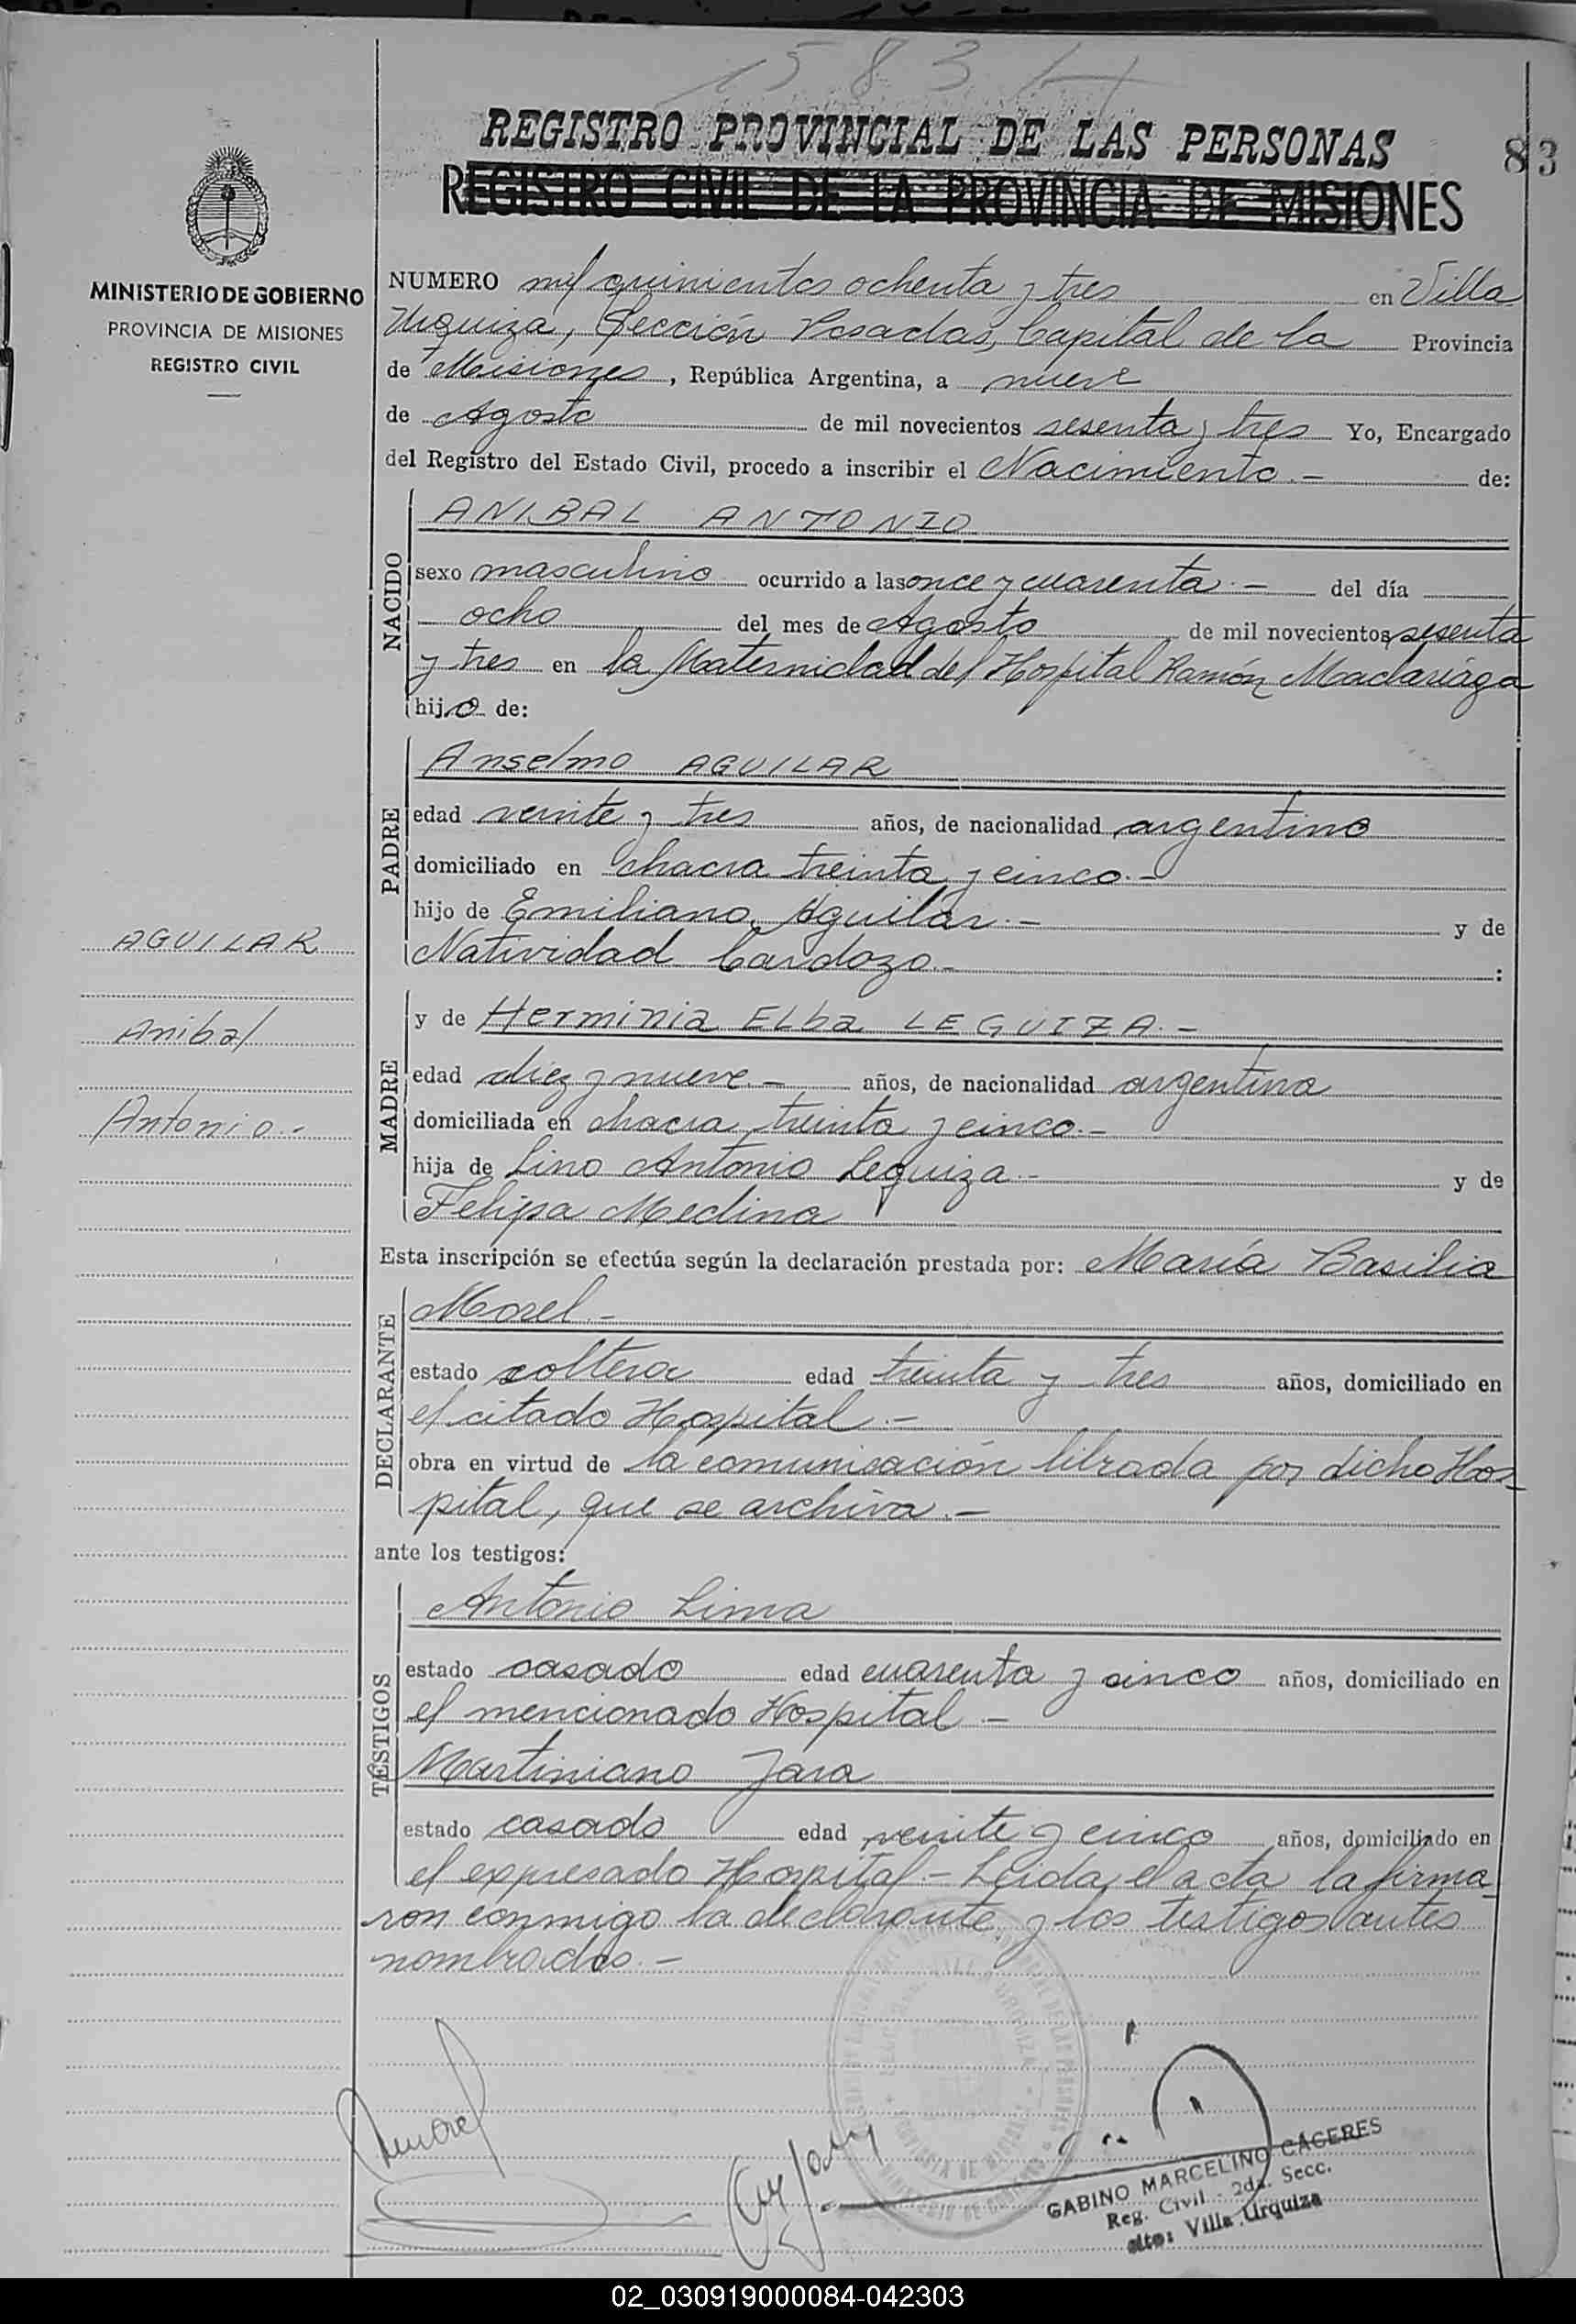 1583
REGISTRO PROVINCIAL DE LAS PERSONAS
83
REGISTRO CIVIL DE LA PROVINCIA DE MISIONES
MINISTERIO DE GOBIERNO
PROVINCIA DE MISIONES
REGISTRO CIVIL
NUMERO mil quinientos ochenta y tres en Villa
Urquiza, Sección Posadas, Capital de la Provincia
de Misiones, República Argentina, a nueve
de Agosto de mil novecientos sesenta y tres Yo, Encargado
del Registro del Estado Civil, procedo a inscribir el Nacimiento.- de:
NACIDO
ANIBAL ANTONIO
sexo masculino ocurrido a las once y cuarenta.- del día
ocho del mes de Agosto de mil novecientos sesenta
y tres en la Maternidad del Hospital Ramón Madariaga
hijo de:
PADRE
Anselmo AGUILAR
edad veinte y tres años, de nacionalidad argentino
domiciliado en chacra treinta y cinco.-
hijo de Emiliano Aguilar.- y de
Natividad Cardozo.- :
AGUILAR
Anibal
Antonio.-
MADRE
y de Herminia ELba LEGUIZA.-
edad diez y nueve.- años, de nacionalidad argentina
domiciliada en chacra treinta y cinco.-
hija de Lino Antonio Leguiza.- y de
Felipa Medina
Esta inscripción se efectúa según la declaración prestada por: María Basilia
DECLARANTE
Morel.-
estado soltera edad treinta y tres años, domiciliado en
el citado Hospital.-
obra en virtud de la comunicación librada por dicho Hos-
pital, que se archiva.-
ante los testigos:
TESTIGOS
Antonio Lima
estado casado edad cuarenta y cinco años, domiciliado en
el mencionado Hospital -
Martiniano Jara
estado casado edad veinte y cinco años, domiciliado en
el expresado Hospital.- Leida el acta la firma-
ron conmigo la declarante y los testigos antes
nombrados.-
GABINO MARCELINO CACERES
Reg. Civil - 2da. Secc.
Villa Urquiza
02_030919000084-042303